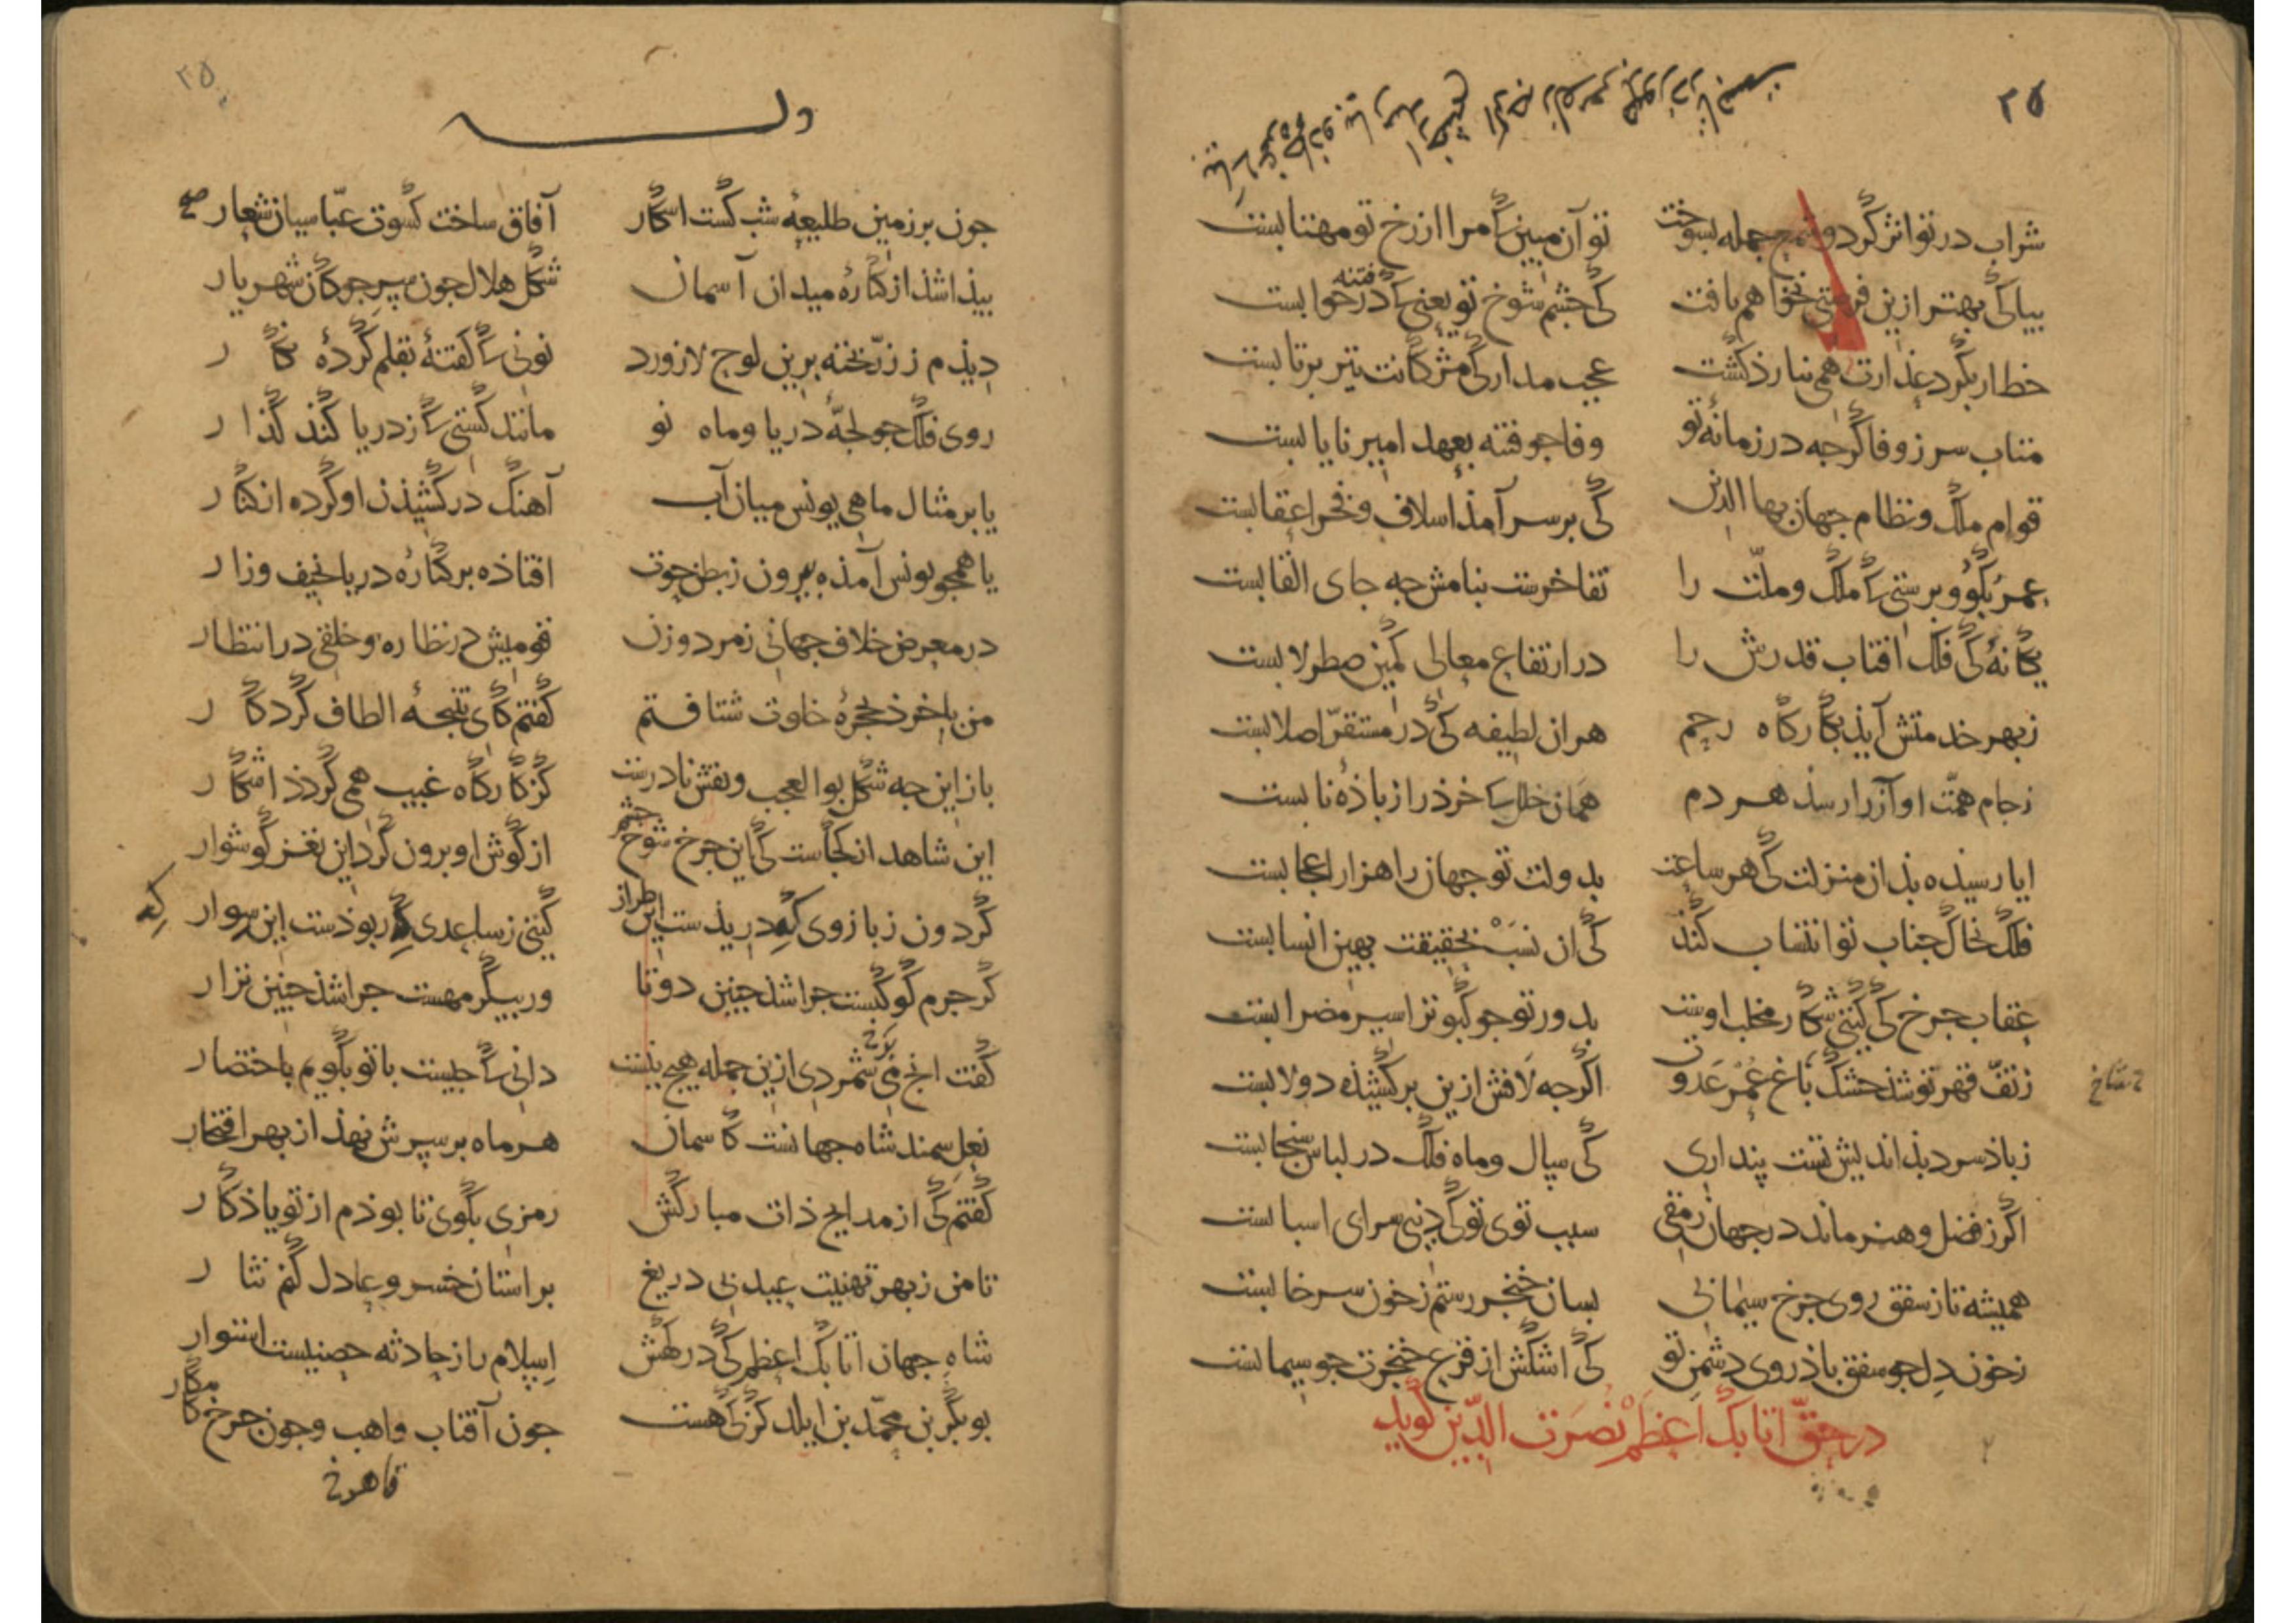 ۳۵
شراب در تو اثر کرد و شرم جمله بسوخت تو آن مبین که مرا از رخ تو مهتابست
بیا کی بهتر ازین فرصتی نخواهم یافت کی چشم شوخ تو یعنی که فتنه در خوابست
خط ار بگرد عذارت همی نیارذ کشت عجب مدار کی مژکانت تیر پرتابست
متاب سر ز وفا گرچه در زمانهٔ تو وفا جو فتنه بعهد امیر نایابست
قوام ملک و نظام جهان بها الدین کی بر سر آمذ اسلاف و فخر اعقابست
عمر بکو و برستی که ملک و ملّت را تفاخرست بنامش جه جای القابست
یکانهٔ کی فلک افتاب قدرش را در ارتفاع معالی کمین صطرلابست
ز بهر خدمتش آیذ بکارکاه رحم هر ان لطیفه کی در مستقرّ اصلابست
ز جام همّت او آز را رسذ هر دم همان خلل که خرذ را ز باذهٔ نابست
ایا رسیذه بذان منزلت کی هر ساعت بدولت تو جهان را هزار اعجابست
فلک بخاک جناب تو انتساب کند کی ان نسب بحقیقت بهین انسابست
عقاب جرخ کی کیتی شکار مخلب اوست بدور تو جو کبوتر اسیر مضرابست
ز تفّ قهر تو شذ خشک باغ عمر عدوت اکرجه لافش ازین برکشیذه دولابست
ز باذ سرد بذاندیش تست پنداری کی سال و ماه فلک در لباس سنجابست
اکر ز فضل و هنر ماند در جهان رمقی سبب توی تو کی دنیی سرای اسبابست
همیشه تا ز شفق روی جرخ سیمابی بسان خنجر رستم ز خون سرخابست
ز خون دل جو شفق باذ روی دشمن تو کی اشکش از فزع خنجرت جو سیمابست
در حقّ اتابک اعظم نصرت الدّین کوید
۳۵
وله
جون بر زمین طلیعهٔ شب کشت اشکار آفاق ساخت کسوت عبّاسیان شعار
بیذا شذ از کنارهٔ میدان آسمان شکل هلال جون سر جوکان شهریار
دیذم ز زرّ پخته برین لوح لازورد نونی که کفتهٔ بقلم کردهٔ نکار
روی فلک جو لجّهٔ دریا و ماه نو مانند کشتی که ز دریا کند کذار
یا بر مثال ماهی یونس میان آب آهنک در کشیذن او کرده از کنار
یا همجو یونس آمذه بیرون ز بطن حوت افتاذه بر کنارهٔ دریا نحیف و زار
در معرض خلاف جهانی ز مرد و زن قومیش در نظاره و خلقی در انتظار
من با خرذ بحجرهٔ خلوت شتافتم کفتم کای نتیجهٔ الطاف کردکار
باز این جه شکل بوالعجب و نقش نادرست کز کارکاه غیب همی کردذ اشکار
این شاهد از کجاست کی این جرخ شوخ چشم از کوش او برون کرد این نغز کوشوار
کردون ز بازوی که دریذست این طراز کیتی ز ساعدی که ربوذست این سوار
کر جرم کوکبست جرا شذ جنین دوتا ور بیکر مهست جرا شذ جنین نزار
کفت انج بر شمردی ازین جمله هیج نیست دانی که جیست با تو بکویم باختصار
نعل سمند شاه جهانست کاسمان هر ماه بر سرش نهذ از بهر افتخار
کفتم کی از مدایح ذات مبارکش رمزی بکوی تا بوذم از تو یاذکار
تا من ز بهر تهنیت عید بی دریغ بر استان خسرو عادل کنم نثار
شاه جهان اتابک اعظم کی درکهش اسلام را ز حادثه حصنیست استوار
بوبکر بن محمّد بن ایلدکز کی هست جون آفتاب واهب و جون جرخ کامکار
قاهر